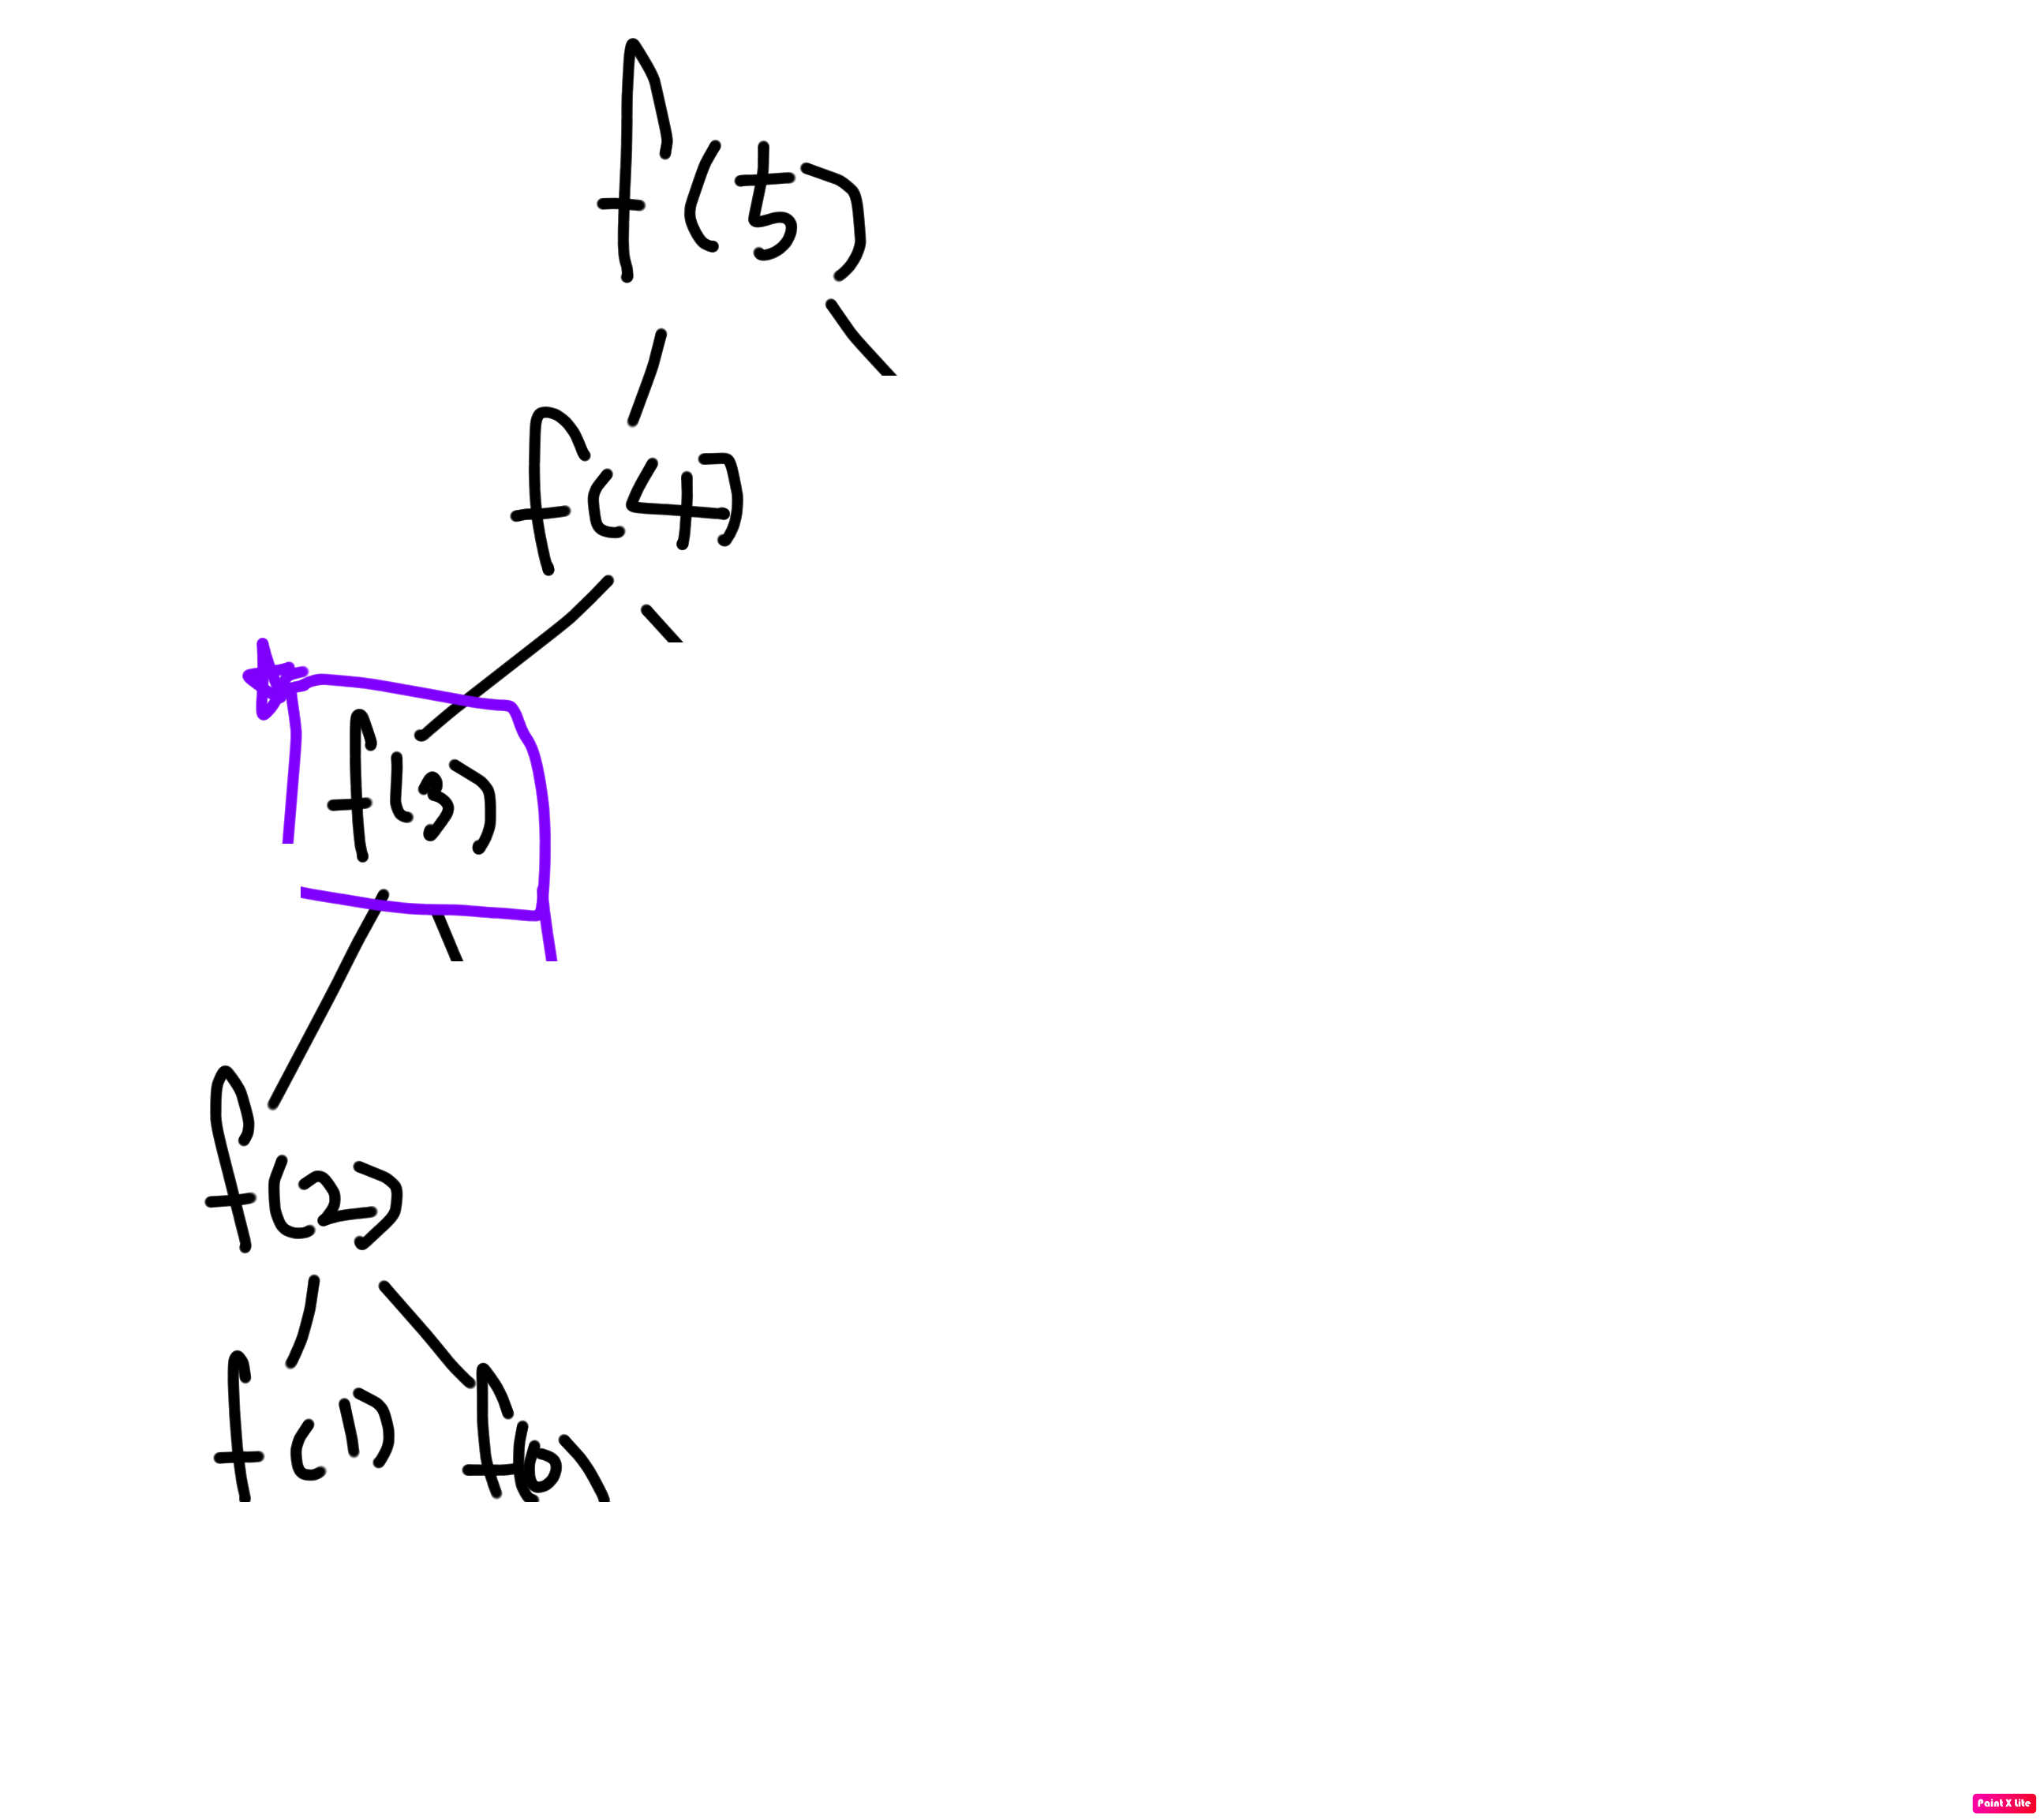 f(5)
f(4)
f(3)
f(2)
f(1) f(0)
Paint X Lite